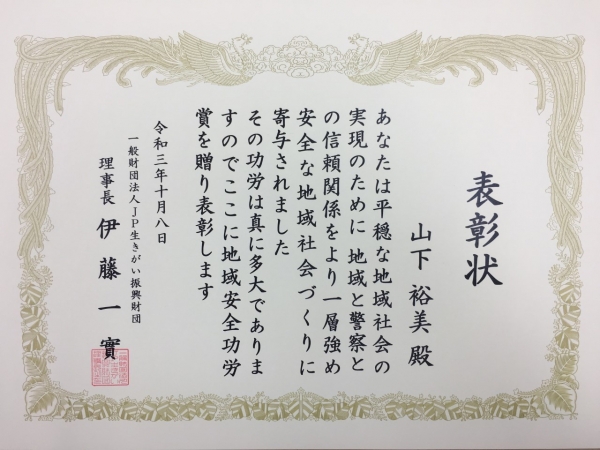 表彰状
山下 裕美 殿
あなたは平穏な地域社会の
実現のために 地域と警察と
の信頼関係をより一層強め
安全な地域社会づくりに
寄与されました
その功労は真に多大でありま
すのでここに地域安全功労
賞を贈り表彰します
令和三年十月八日
一般財団法人JP生きがい振興財団
理事長 伊藤一實